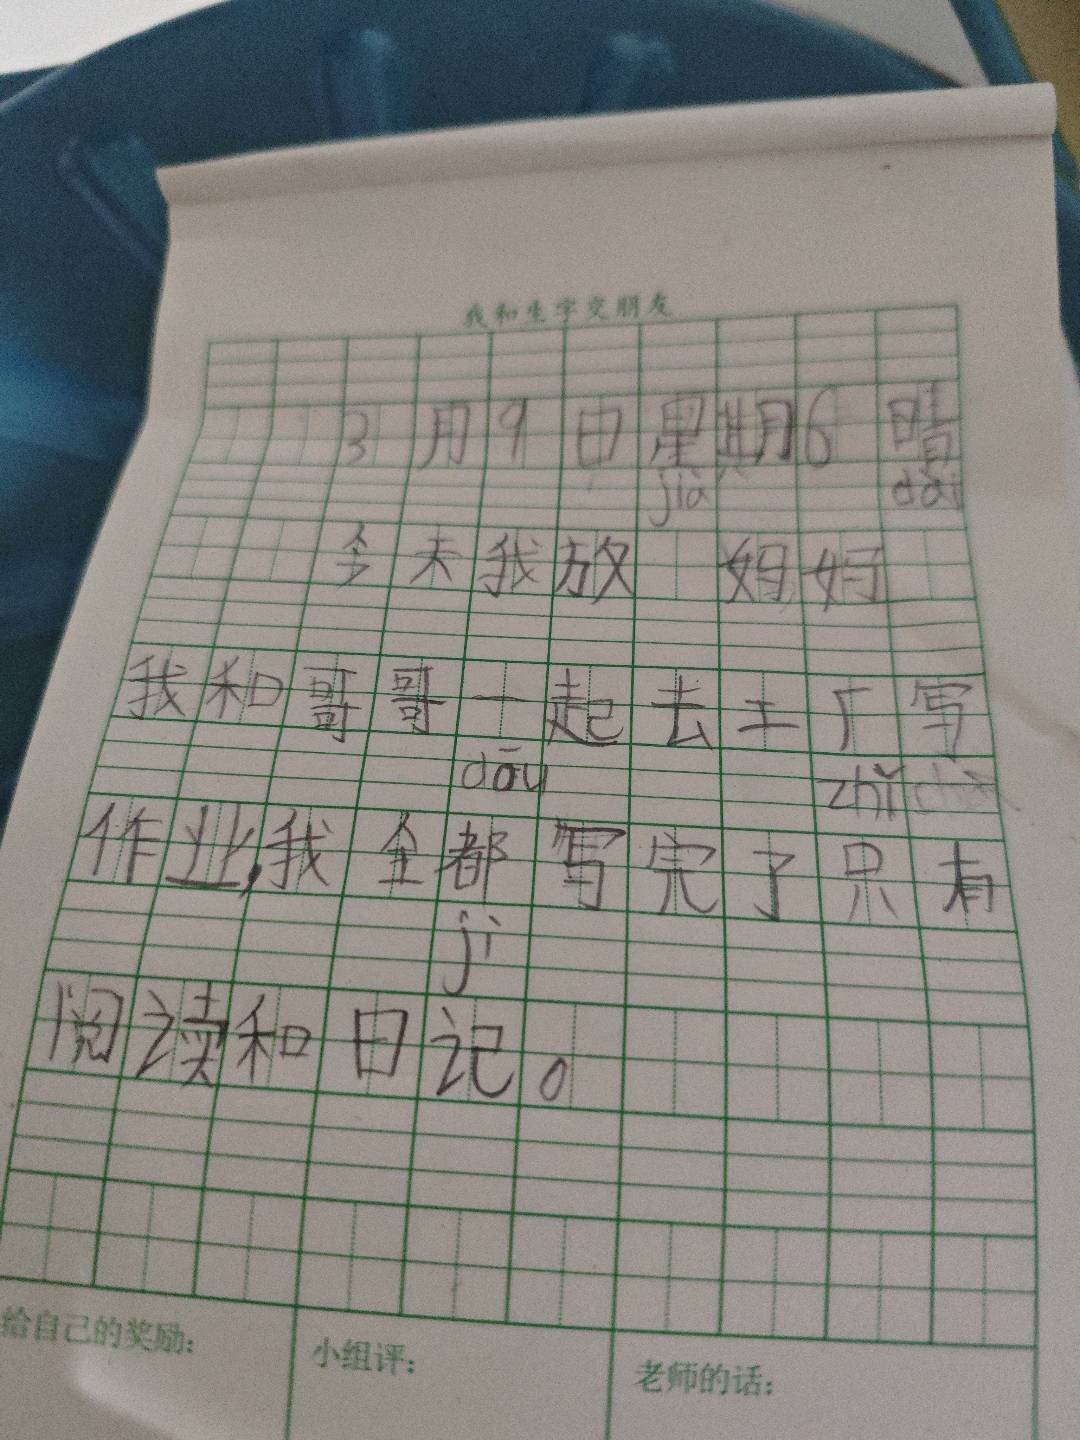 我和生字交朋友
3月9日星期6晴
jià dài
今天我放 妈妈
我和哥哥一起去工厂写
dōu zhǐ
作业,我全都写完了只有
jì
阅读和日记。
给自己的奖励: 小组评: 老师的话: